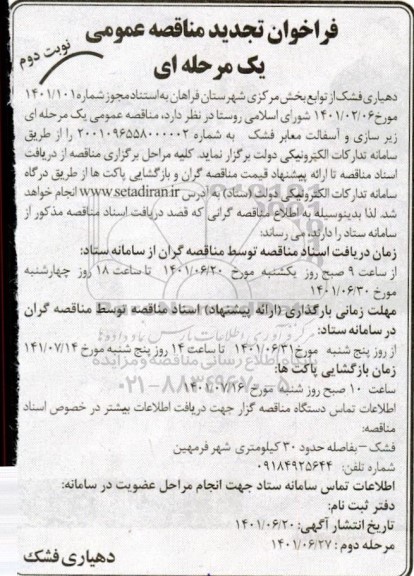 فراخوان تجدید مناقصه عمومی
یک مرحله ای
نوبت دوم
دهیاری فشک از توابع بخش مرکزی شهرستان فراهان به استناد مجوز شماره ۱۴۰۱/۱۰۱
مورخ ۱۴۰۱/۰۲/۰۶ شورای اسلامی روستا در نظر دارد، مناقصه عمومی یک مرحله ای
زیر سازی و آسفالت معابر فشک به شماره ۲۰۰۱۰۹۶۵۵۸۰۰۰۰۰۲ را از طریق
سامانه تدارکات الکترونیکی دولت برگزار نماید. کلیه مراحل برگزاری مناقصه از دریافت
اسناد مناقصه تا ارائه پیشنهاد قیمت مناقصه گران و بازگشایی پاکت ها از طریق درگاه
سامانه تدارکات الکترونیکی دولت (ستاد) به آدرس www.setadiran.ir انجام خواهد
شد. لذا بدینوسیله به اطلاع مناقصه گرانی که قصد دریافت اسناد مناقصه مذکور از
سامانه ستاد را دارند، می رساند:
زمان دریافت اسناد مناقصه توسط مناقصه گران از سامانه ستاد:
از ساعت ۹ صبح روز یکشنبه مورخ ۱۴۰۱/۰۶/۲۰ تا ساعت ۱۸ روز چهارشنبه
مورخ ۱۴۰۱/۰۶/۳۰
مهلت زمانی بارگذاری (ارائه پیشنهاد) اسناد مناقصه توسط مناقصه گران
در سامانه ستاد:
از روز پنج شنبه مورخ ۱۴۰۱/۰۶/۳۱ تا ساعت ۱۴ روز پنج شنبه مورخ ۱۴۱/۰۷/۱۴
زمان بازگشایی پاکت ها:
ساعت ۱۰ صبح روز شنبه مورخ ۱۴۰۱/۰۷/۱۶
اطلاعات تماس دستگاه مناقصه گزار جهت دریافت اطلاعات بیشتر در خصوص اسناد
مناقصه:
فشک – بفاصله حدود ۳۰ کیلومتری شهر فرمهین
شماره تلفن: ۰۹۱۸۴۹۲۵۶۴۴
اطلاعات تماس سامانه ستاد جهت انجام مراحل عضویت در سامانه:
دفتر ثبت نام:
تاریخ انتشار آگهی: ۱۴۰۱/۰۶/۲۰
مرحله دوم: ۱۴۰۱/۰۶/۲۷
دهیاری فشک